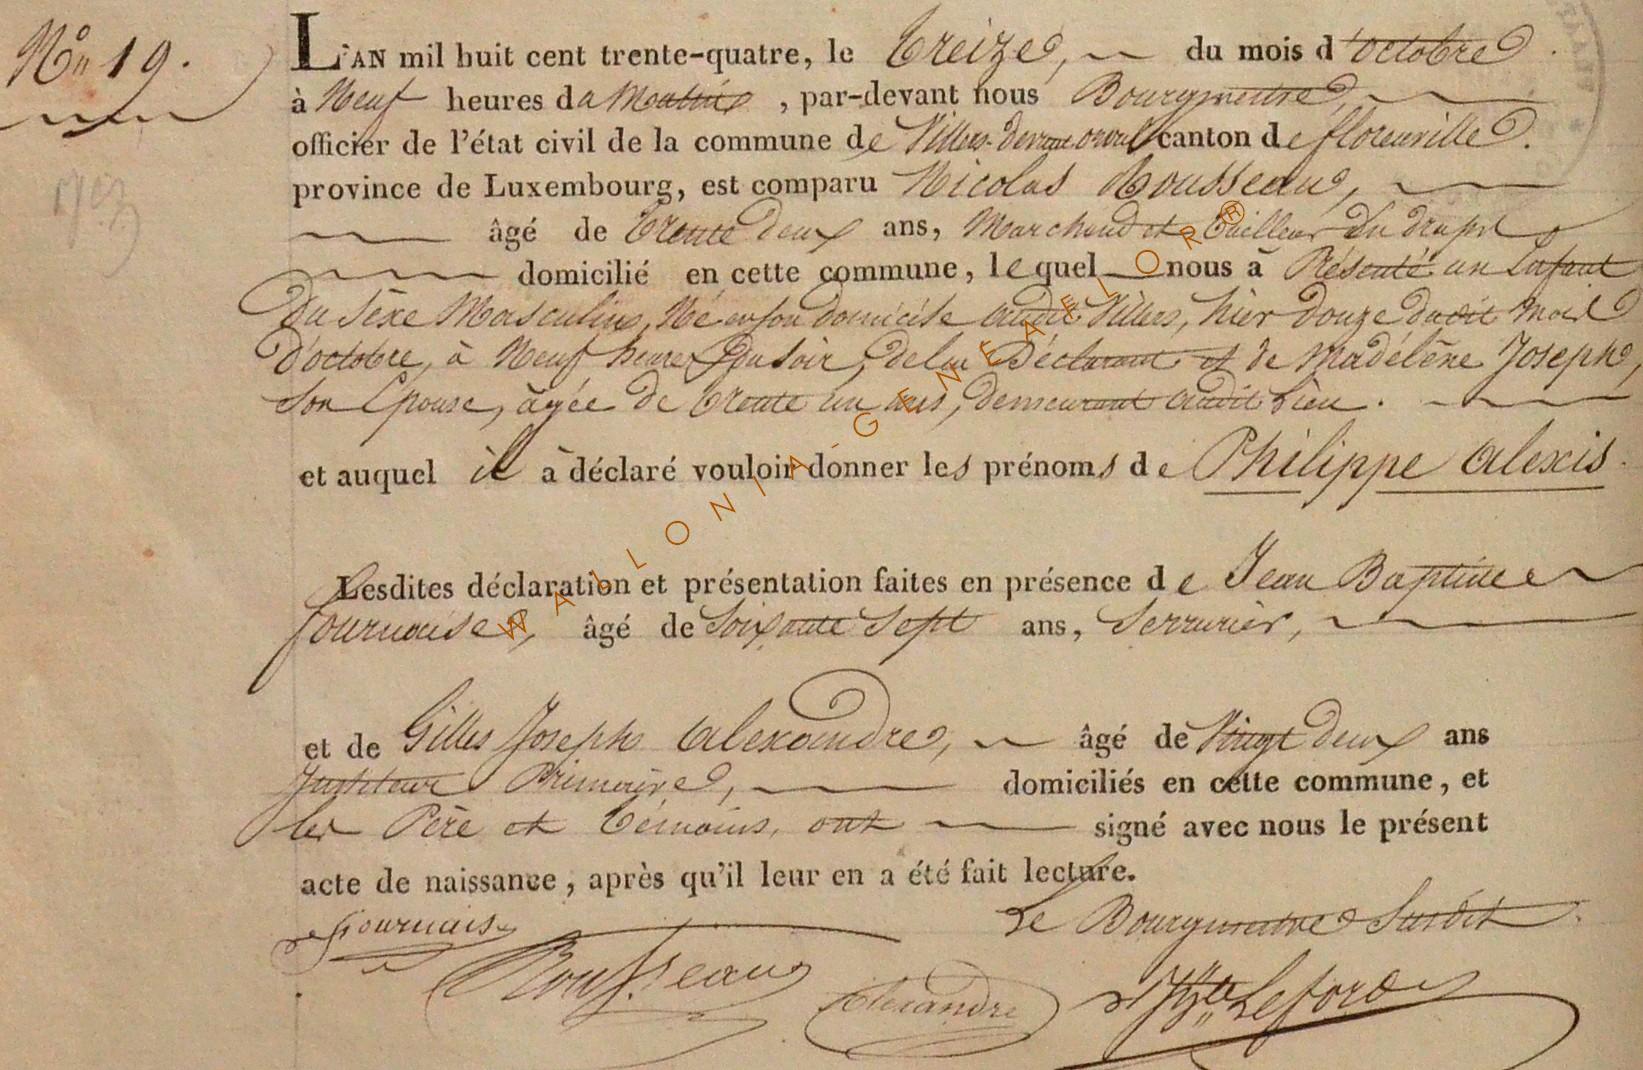 No 19.
L'AN mil huit cent trente-quatre, le treize, du mois d'octobre
à Neuf heures du Matin, par-devant nous Bourgmestre,
officier de l'état civil de la commune de Villers-devant-orval canton de florenville.
province de Luxembourg, est comparu Nicolas Rousseau,
âgé de trente deux ans, Marchand et tailleur du draps
domicilié en cette commune, lequel nous à Présenté un Enfant
du sèxe Masculin, Né en son domicile audit Villers, hier douze dudit mois
d'octobre, à Neuf heures du soir, de lui Déclarant et de Madélène Joseph,
son Epouse, agée de trente un ans, demeurant audit Lieu.
et auquel il à déclaré vouloir donner les prénoms de Philippe Alexis.
Lesdites déclaration et présentation faites en présence de Jean Baptiste
fournaise, âgé de soixante sept ans, Serrurier,
et de Gilles Joseph Alexandre, âgé de Vingt deux ans
Instituteur Primaire, domiciliés en cette commune, et
les Père et témoins, ont signé avec nous le présent
acte de naissance, après qu'il leur en a été fait lecture.
Fournaise Le Bourgmestre Susdit
Rousseau Alexandre
WALLONIA-GENEAELOR®